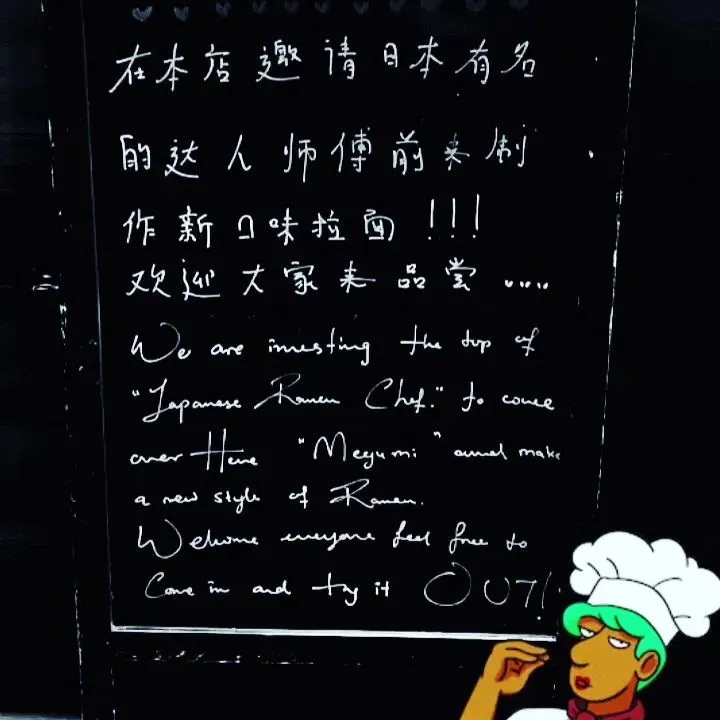 在本店邀请日本有名
的达人师傅前来制
作新口味拉面!!!
欢迎大家来品尝.....
We are investing the top of
"Japanese Ramen Chef." to come
over Here "Megumi" and make
a new style of Ramen.
Welcome everyone feel free to
Come in and try it OUT!